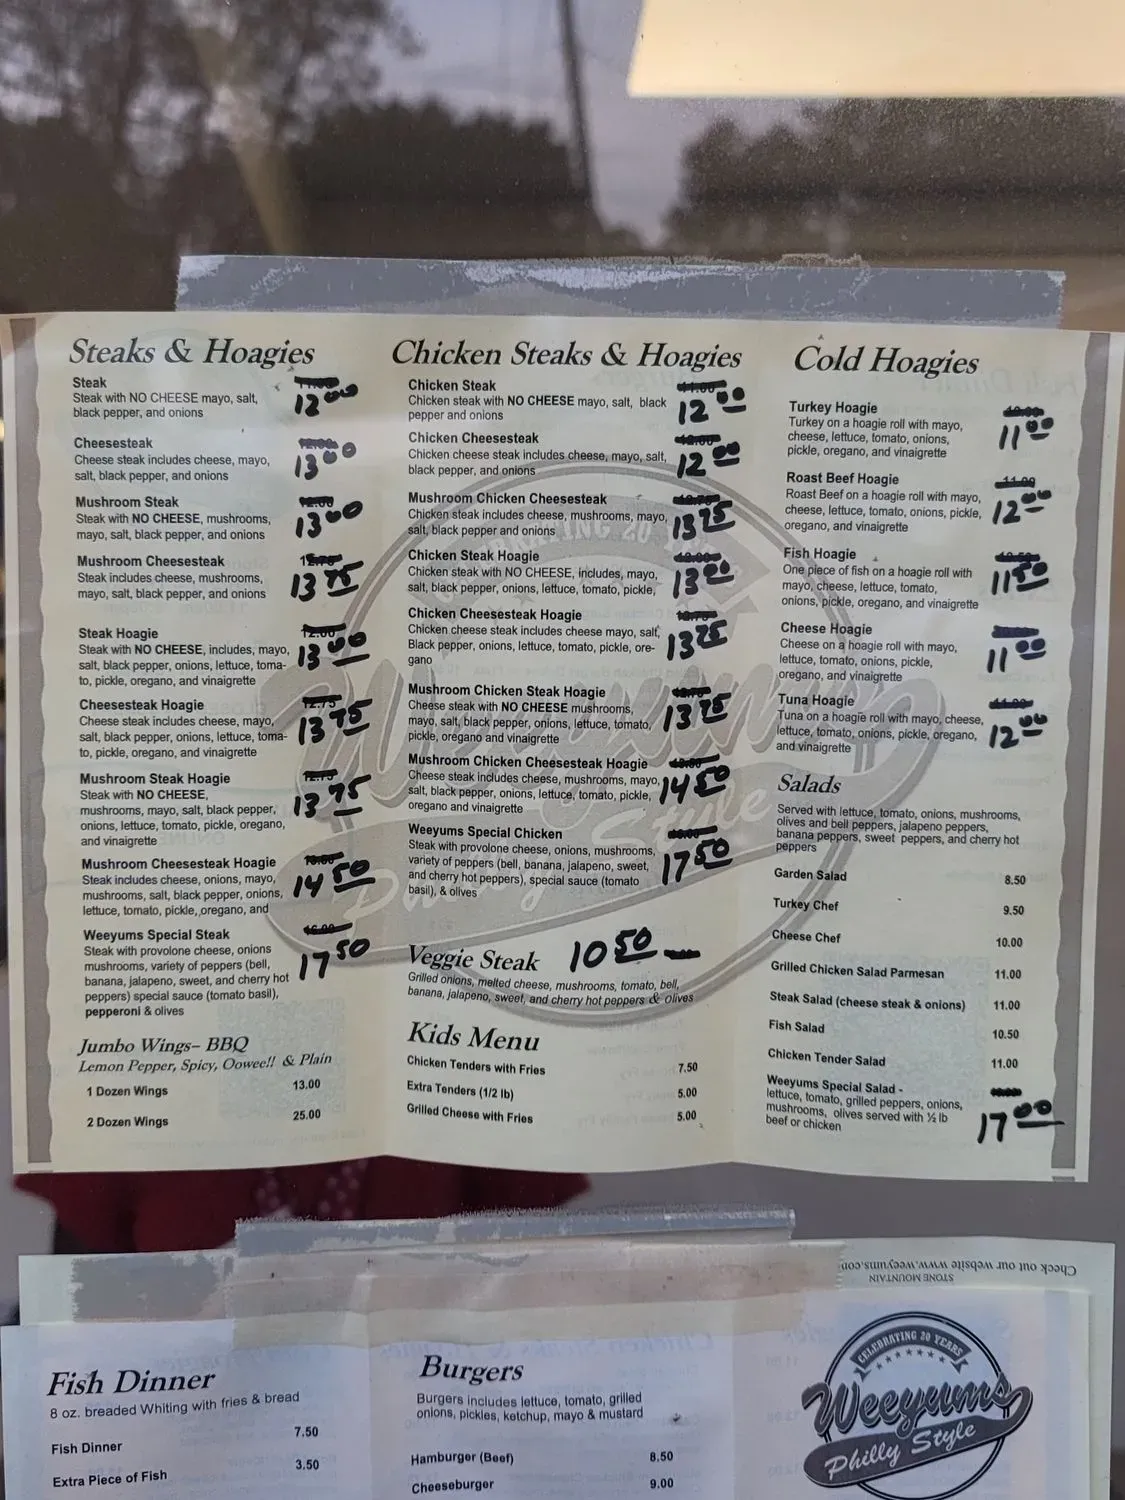 Steaks & Hoagies
Steak 11.00 12.00
Steak with NO CHEESE mayo, salt,
black pepper, and onions
Cheesesteak 12.00 13.00
Cheese steak includes cheese, mayo,
salt, black pepper, and onions
Mushroom Steak 12.00 13.00
Steak with NO CHEESE, mushrooms,
mayo, salt, black pepper, and onions
Mushroom Cheesesteak 12.75 13.75
Steak includes cheese, mushrooms,
mayo, salt, black pepper, and onions
Steak Hoagie 12.00 13.00
Steak with NO CHEESE, includes, mayo,
salt, black pepper, onions, lettuce, toma-
to, pickle, oregano, and vinaigrette
Cheesesteak Hoagie 12.75 13.75
Cheese steak includes cheese, mayo,
salt, black pepper, onions, lettuce, toma-
to, pickle, oregano, and vinaigrette
Mushroom Steak Hoagie 12.75 13.75
Steak with NO CHEESE,
mushrooms, mayo, salt, black pepper,
onions, lettuce, tomato, pickle, oregano,
and vinaigrette
Mushroom Cheesesteak Hoagie 14.50
Steak includes cheese, onions, mayo,
mushrooms, salt, black pepper, onions,
lettuce, tomato, pickle, oregano, and
Weeyums Special Steak 16.00 17.50
Steak with provolone cheese, onions
mushrooms, variety of peppers (bell,
banana, jalapeno, sweet, and cherry hot
peppers) special sauce (tomato basil),
pepperoni & olives
Jumbo Wings– BBQ
Lemon Pepper, Spicy, Oowee!! & Plain
1 Dozen Wings 13.00
2 Dozen Wings 25.00
Chicken Steaks & Hoagies
Chicken Steak 11.00 12.00
Chicken steak with NO CHEESE mayo, salt, black
pepper and onions
Chicken Cheesesteak 12.00
Chicken cheese steak includes cheese, mayo, salt,
black pepper, and onions
Mushroom Chicken Cheesesteak 12.75 13.75
Chicken steak includes cheese, mushrooms, mayo,
salt, black pepper and onions
Chicken Steak Hoagie 12.00 13.00
Chicken steak with NO CHEESE, includes, mayo,
salt, black pepper, onions, lettuce, tomato, pickle,
Chicken Cheesesteak Hoagie 12.75 13.75
Chicken cheese steak includes cheese mayo, salt,
Black pepper, onions, lettuce, tomato, pickle, ore-
gano
Mushroom Chicken Steak Hoagie 12.75 13.75
Cheese steak with NO CHEESE mushrooms,
mayo, salt, black pepper, onions, lettuce, tomato,
pickle, oregano and vinaigrette
Mushroom Chicken Cheesesteak Hoagie 14.50
Cheese steak includes cheese, mushrooms, mayo,
salt, black pepper, onions, lettuce, tomato, pickle,
oregano and vinaigrette
Weeyums Special Chicken 16.00 17.50
Steak with provolone cheese, onions, mushrooms,
variety of peppers (bell, banana, jalapeno, sweet,
and cherry hot peppers), special sauce (tomato
basil), & olives
Veggie Steak 10.50
Grilled onions, melted cheese, mushrooms, tomato, bell,
banana, jalapeno, sweet, and cherry hot peppers & olives
Kids Menu
Chicken Tenders with Fries 7.50
Extra Tenders (1/2 lb) 5.00
Grilled Cheese with Fries 5.00
Cold Hoagies
Turkey Hoagie 10.00 11.00
Turkey on a hoagie roll with mayo,
cheese, lettuce, tomato, onions,
pickle, oregano, and vinaigrette
Roast Beef Hoagie 11.00 12.00
Roast Beef on a hoagie roll with mayo,
cheese, lettuce, tomato, onions, pickle,
oregano, and vinaigrette
Fish Hoagie 10.50 11.50
One piece of fish on a hoagie roll with
mayo, cheese, lettuce, tomato,
onions, pickle, oregano, and vinaigrette
Cheese Hoagie 11.00
Cheese on a hoagie roll with mayo,
lettuce, tomato, onions, pickle,
oregano, and vinaigrette
Tuna Hoagie 11.00 12.00
Tuna on a hoagie roll with mayo, cheese,
lettuce, tomato, onions, pickle, oregano,
and vinaigrette
Salads
Served with lettuce, tomato, onions, mushrooms,
olives and bell peppers, jalapeno peppers,
banana peppers, sweet peppers, and cherry hot
peppers
Garden Salad 8.50
Turkey Chef 9.50
Cheese Chef 10.00
Grilled Chicken Salad Parmesan 11.00
Steak Salad (cheese steak & onions) 11.00
Fish Salad 10.50
Chicken Tender Salad 11.00
Weeyums Special Salad - 17.00
lettuce, tomato, grilled peppers, onions,
mushrooms, olives served with ½ lb
beef or chicken
CELEBRATING 20 YEARS
Weeyums
Philly Style
Check out our website www.weeyums.com
STONE MOUNTAIN
Fish Dinner
8 oz. breaded Whiting with fries & bread
Fish Dinner 7.50
Extra Piece of Fish 3.50
Burgers
Burgers includes lettuce, tomato, grilled
onions, pickles, ketchup, mayo & mustard
Hamburger (Beef) 8.50
Cheeseburger 9.00
CELEBRATING 20 YEARS
Weeyums
Philly Style